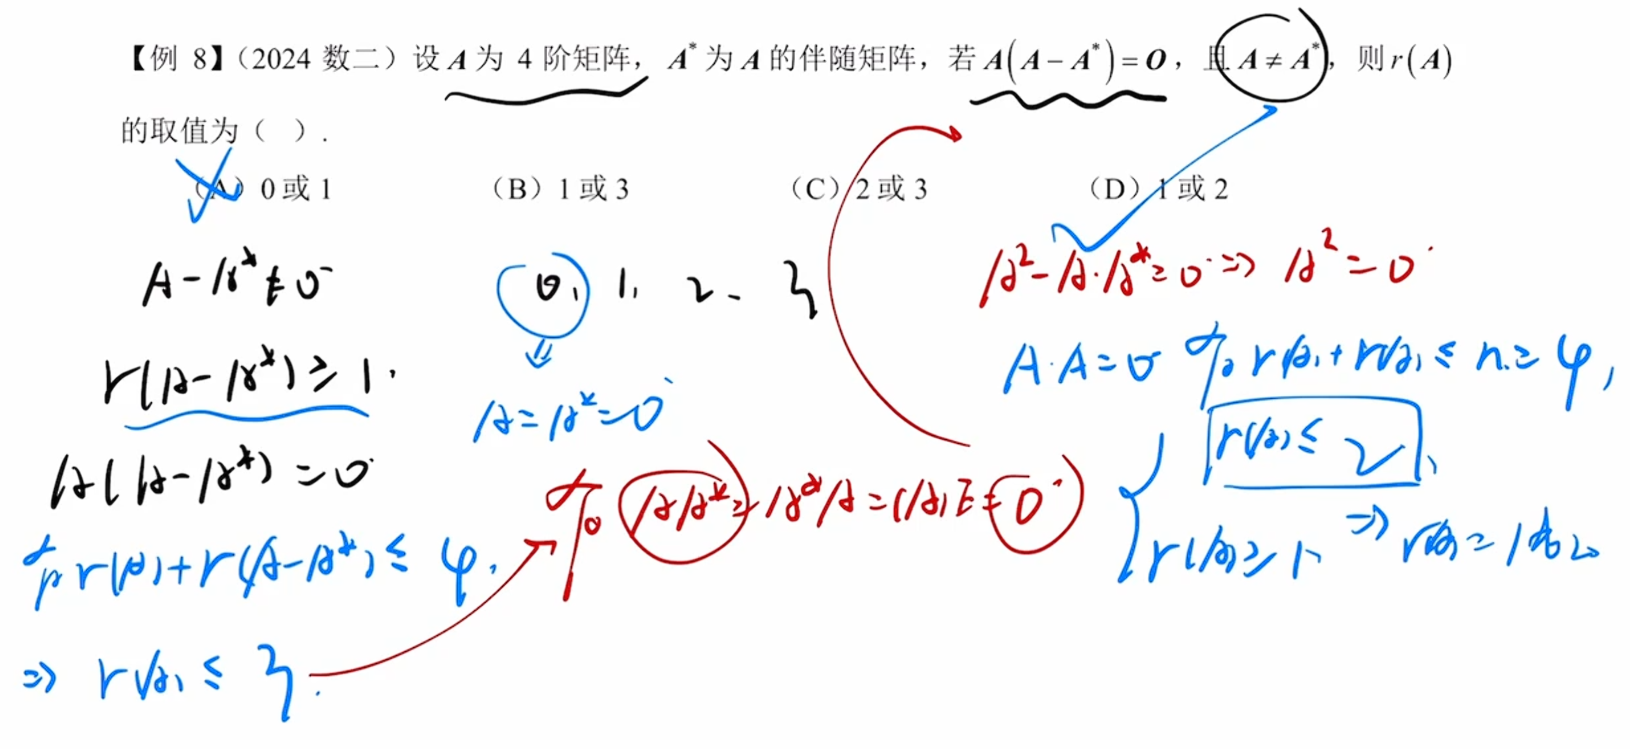 【例 8】(2024 数二) 设 A 为 4 阶矩阵, A* 为 A 的伴随矩阵, 若 A(A − A*) = O, 且 A ≠ A*, 则 r(A)
的取值为 ( ) .
(A) 0 或 1 (B) 1 或 3 (C) 2 或 3 (D) 1 或 2
A − A* ≠ 0
r(A − A*) ≥ 1.
A(A − A*) = 0
r(A) + r(A − A*) ≤ 4.
⇒ r(A) ≤ 3.
0, 1, 2, 3
⇓
A = A* = 0
AA* = A*A = |A|E = 0
A² − A·A* = 0 ⇒ A² = 0
A·A = 0 r(A) + r(A) ≤ n = 4,
r(A) ≤ 2,
r(A) ≥ 1, ⇒ r(A) = 1或2